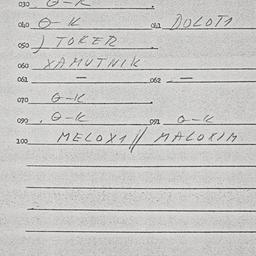 030 O-K
040 O-K 041 DOLOTA
050 ) TOKER
060 XAMUTNIK
061 — 062 —
070 O-K
090 O-K 091 O-K
100 MELOXA // MALOKIM